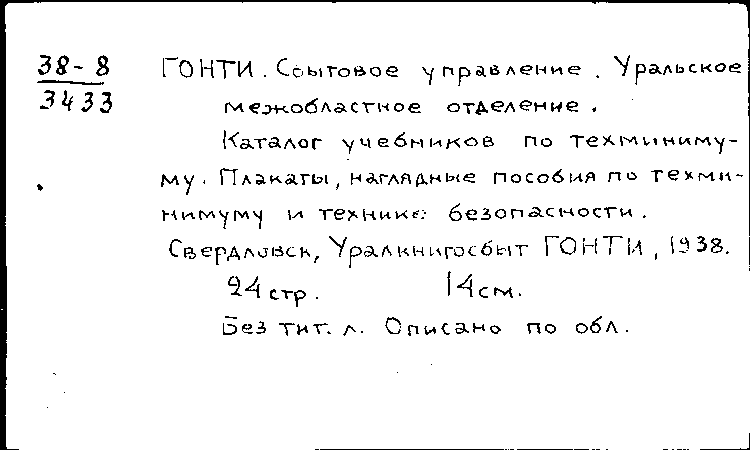 38-8
3433
ГОНТИ. Сбытовое управление. Уральское
межобластное отделение.
Каталог учебников по техминиму-
му. Плакаты, наглядные пособия по техми-
нимуму и технике безопасности.
Свердловск, Уралкнигосбыт ГОНТИ, 1938.
24 стр. 14 см.
Без тит. л. Описано по обл.